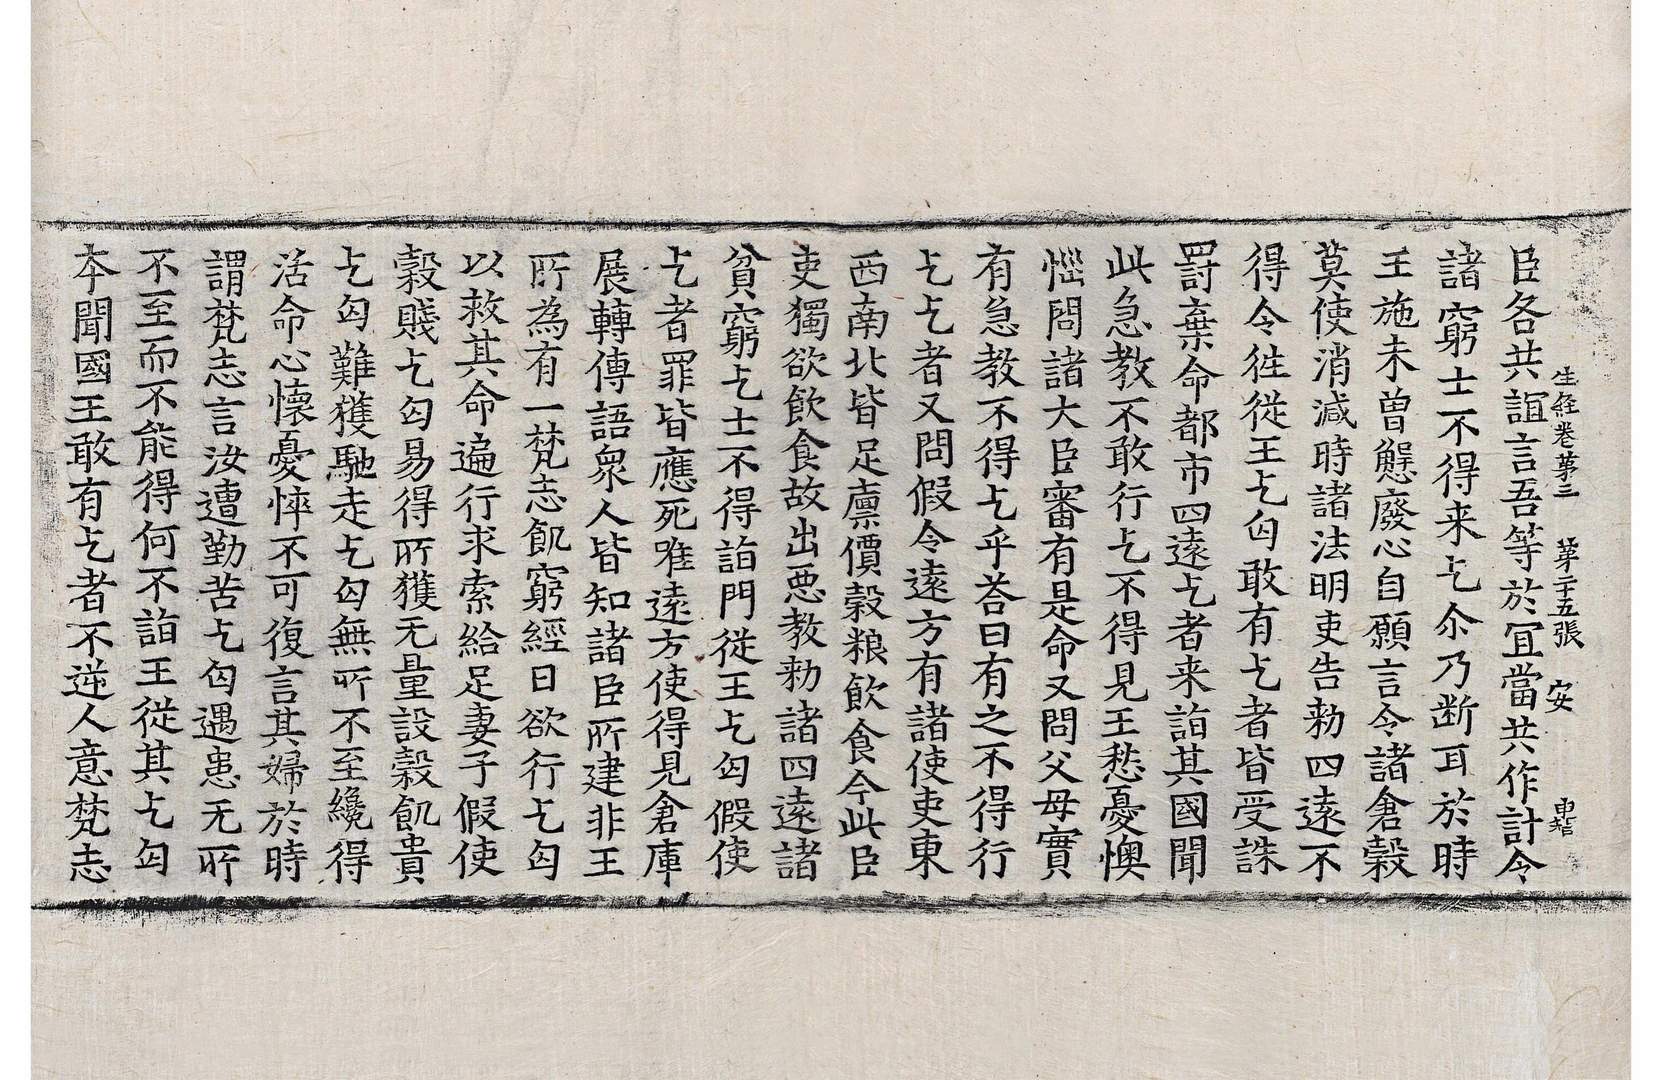 生經卷第三 第二十五張 安
臣各共誼言吾等於冝當共作計令
諸窮士不得来乞尒乃断耳於時
王施未曾懈廢心自願言令諸倉穀
莫使消減時諸法明吏告勑四遠不
得令徃從王乞匃敢有乞者皆受誅
罸棄命都市四遠乞者来詣其國聞
此急教不敢行乞不得見王愁憂懊
惱問諸大臣審有是命又問父母實
有急教不得乞乎荅曰有之不得行
乞乞者又問假令遠方有諸使吏東
西南北皆足廩價穀粮飲食今此臣
吏獨欲飲食故出惡教勑諸四遠諸
貧窮乞士不得詣門從王乞匃假使
乞者罪皆應死唯遠方使得見倉庫
展轉傳語衆人皆知諸臣所建非王
所為有一梵志飢窮經日欲行乞匃
以救其命遍行求索給足妻子假使
穀賤乞匃易得所獲无量設穀飢貴
乞匃難獲馳走乞匃無所不至纔得
活命心懷憂悴不可復言其婦於時
謂梵志言汝遭勤苦乞匃遇患无所
不至而不能得何不詣王從其乞匃
本聞國王敢有乞者不逆人意梵志